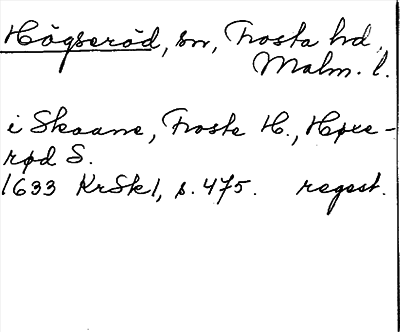 Högseröd, sn, Frosta hd,
Malm. l.
i Skaane, Froste H., Høxe-
rød S.
1633 KrSkl, s. 475. regest.